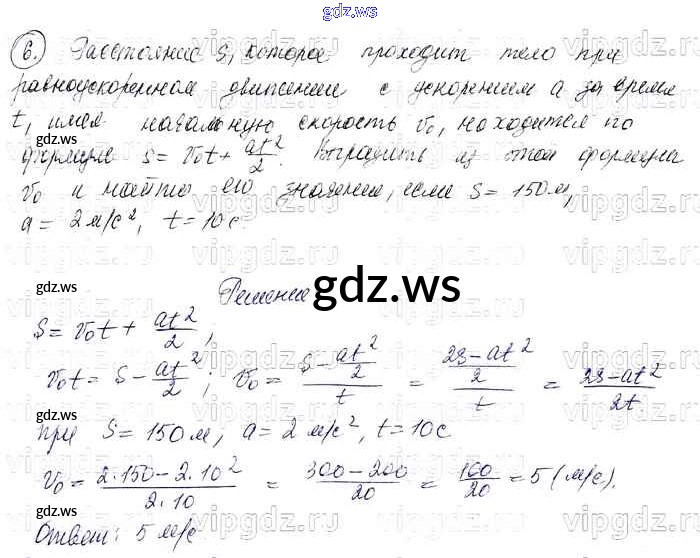 gdz.ws
6. Расстояние S, которое проходит тело при
равноускоренном движении с ускорением a за время
t, имея начальную скорость v₀, находится по
формуле S = v₀t + at²/2. Выразить из этой формулы
v₀ и найти его значение, если S = 150 м,
a = 2 м/с², t = 10 с.
Решение
S = v₀t + at²/2,
v₀t = S - at²/2; v₀ = (S - at²/2)/t = ((2S - at²)/2)/t = (2S - at²)/2t.
при S = 150 м, a = 2 м/с², t = 10 с
v₀ = (2·150 - 2·10²)/(2·10) = (300 - 200)/20 = 100/20 = 5 (м/с).
Ответ: 5 м/с
gdz.ws
gdz.ws
gdz.ws
gdz.ws
gdz.ws
gdz.ws
gdz.ws
gdz.ws
gdz.ws
vipgdz.ru